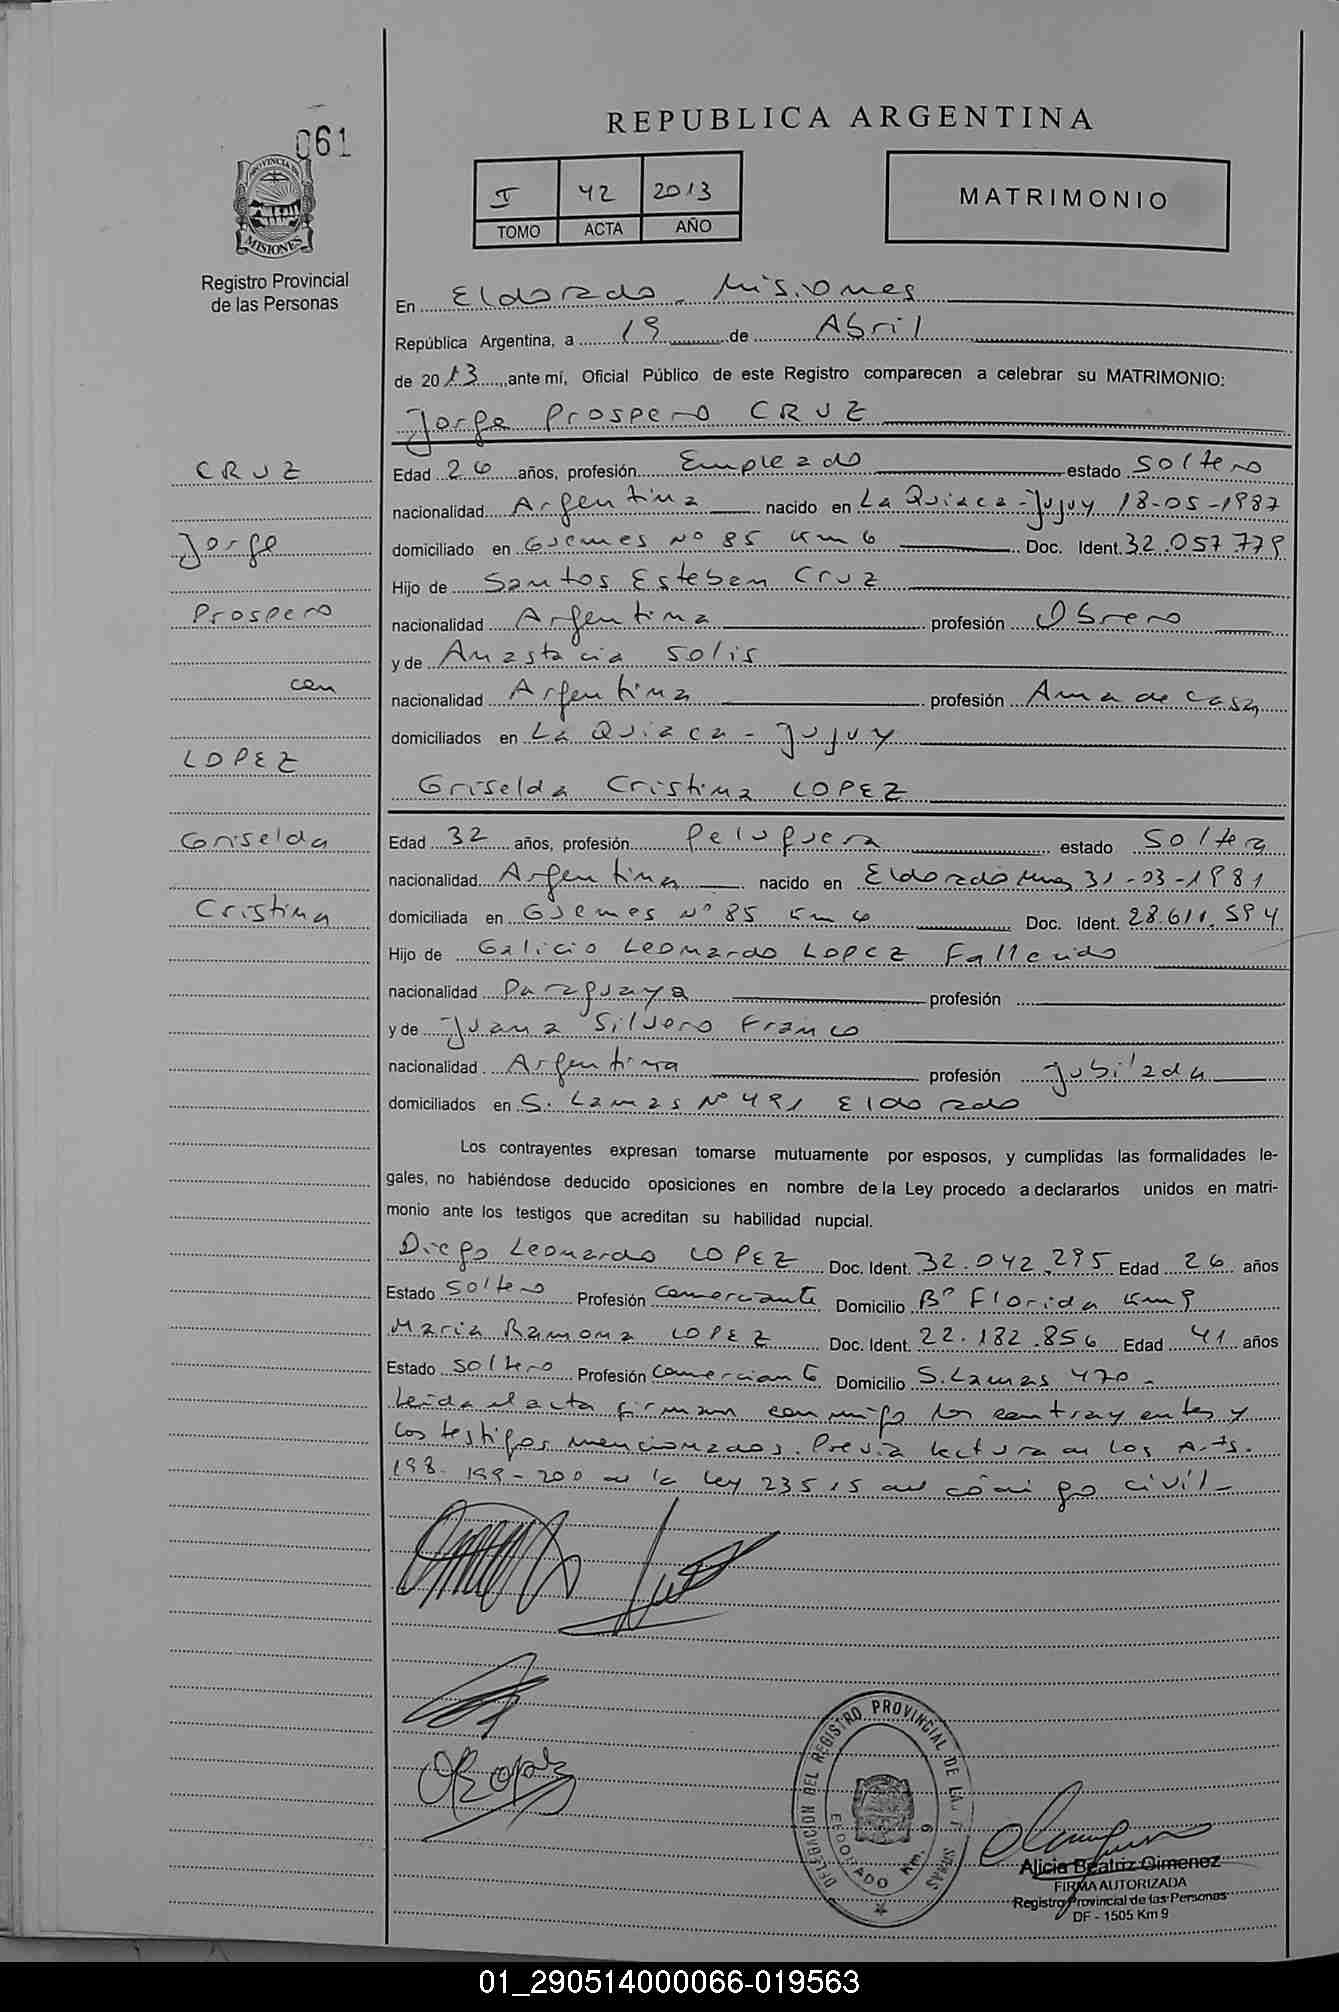 REPUBLICA ARGENTINA
061
PROVINCIA DE
MISIONES
Registro Provincial
de las Personas
I 42 2013
TOMO ACTA AÑO
MATRIMONIO
En Eldorado - Misiones
República Argentina, a 19 de Abril
de 2013, ante mí, Oficial Público de este Registro comparecen a celebrar su MATRIMONIO:
Jorge Prospero CRUZ
CRUZ
Jorge
Prospero
con
LOPEZ
Griselda
Cristina
Edad 26 años, profesión Empleado estado Soltero
nacionalidad Argentina nacido en La Quiaca - Jujuy 18-05-1987
domiciliado en Guemes Nº 85 Km 6 Doc. Ident. 32.057.779
Hijo de Santos Esteben Cruz
nacionalidad Argentina profesión Obrero
y de Anastacia Solis
nacionalidad Argentina profesión Ama de casa
domiciliados en La Quiaca - Jujuy
Griselda Cristina LOPEZ
Edad 32 años, profesión Peluquera estado Soltera
nacionalidad Argentina nacido en Eldorado Mnes 31-03-1981
domiciliada en Guemes Nº 85 Km 6 Doc. Ident. 28.611.594
Hijo de Galicio Leonardo LOPEZ Fallecido
nacionalidad Paraguaya profesión
y de Juana Silvero Franco
nacionalidad Argentina profesión Jubilada
domiciliados en S. Lamas Nº 491 Eldorado
Los contrayentes expresan tomarse mutuamente por esposos, y cumplidas las formalidades le-
gales, no habiéndose deducido oposiciones en nombre de la Ley procedo a declararlos unidos en matri-
monio ante los testigos que acreditan su habilidad nupcial.
Diego Leonardo LOPEZ Doc. Ident. 32.042.295 Edad 26 años
Estado Soltero Profesión Comerciante Domicilio Bº Florida Km 9
Maria Ramona LOPEZ Doc. Ident. 22.182.856 Edad 41 años
Estado Soltero Profesión Comerciante Domicilio S. Lamas 470 -
Leida el acta firman conmigo los contrayentes y
los testigos mencionados. Previa lectura de los Arts.
198- 199- 200 de la Ley 23515 del código civil -
DELEGACION DEL REGISTRO PROVINCIAL DE LAS
ELDORADO Km. 6
Alicia Beatriz Gimenez
FIRMA AUTORIZADA
Registro Provincial de las Personas
DF - 1505 Km 9
01_290514000066-019563